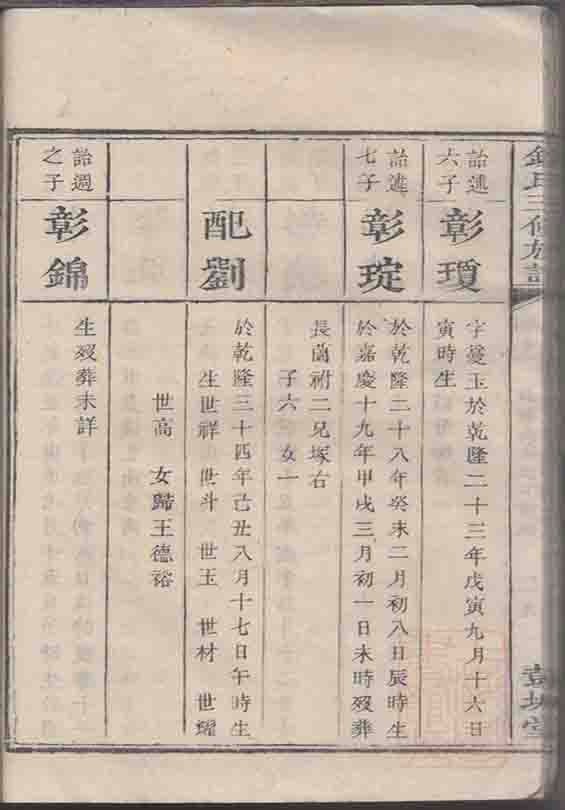 詒進
六子
彰瓊
字夔玉於乾隆二十三年戊寅九月十六日
寅時生
詒進
七子
彰琔
於乾隆二十八年癸未二月初八日辰時生
於嘉慶十九年甲戌三月初一日未時歿葬
長蒚祔二兄塚右
子六 女一
配劉
於乾隆三十四年己丑八月十七日午時生
生世祥 世斗 世玉 世材 世耀
世高 女歸王德裕
詒週
之子
彰錦
生歿葬未詳